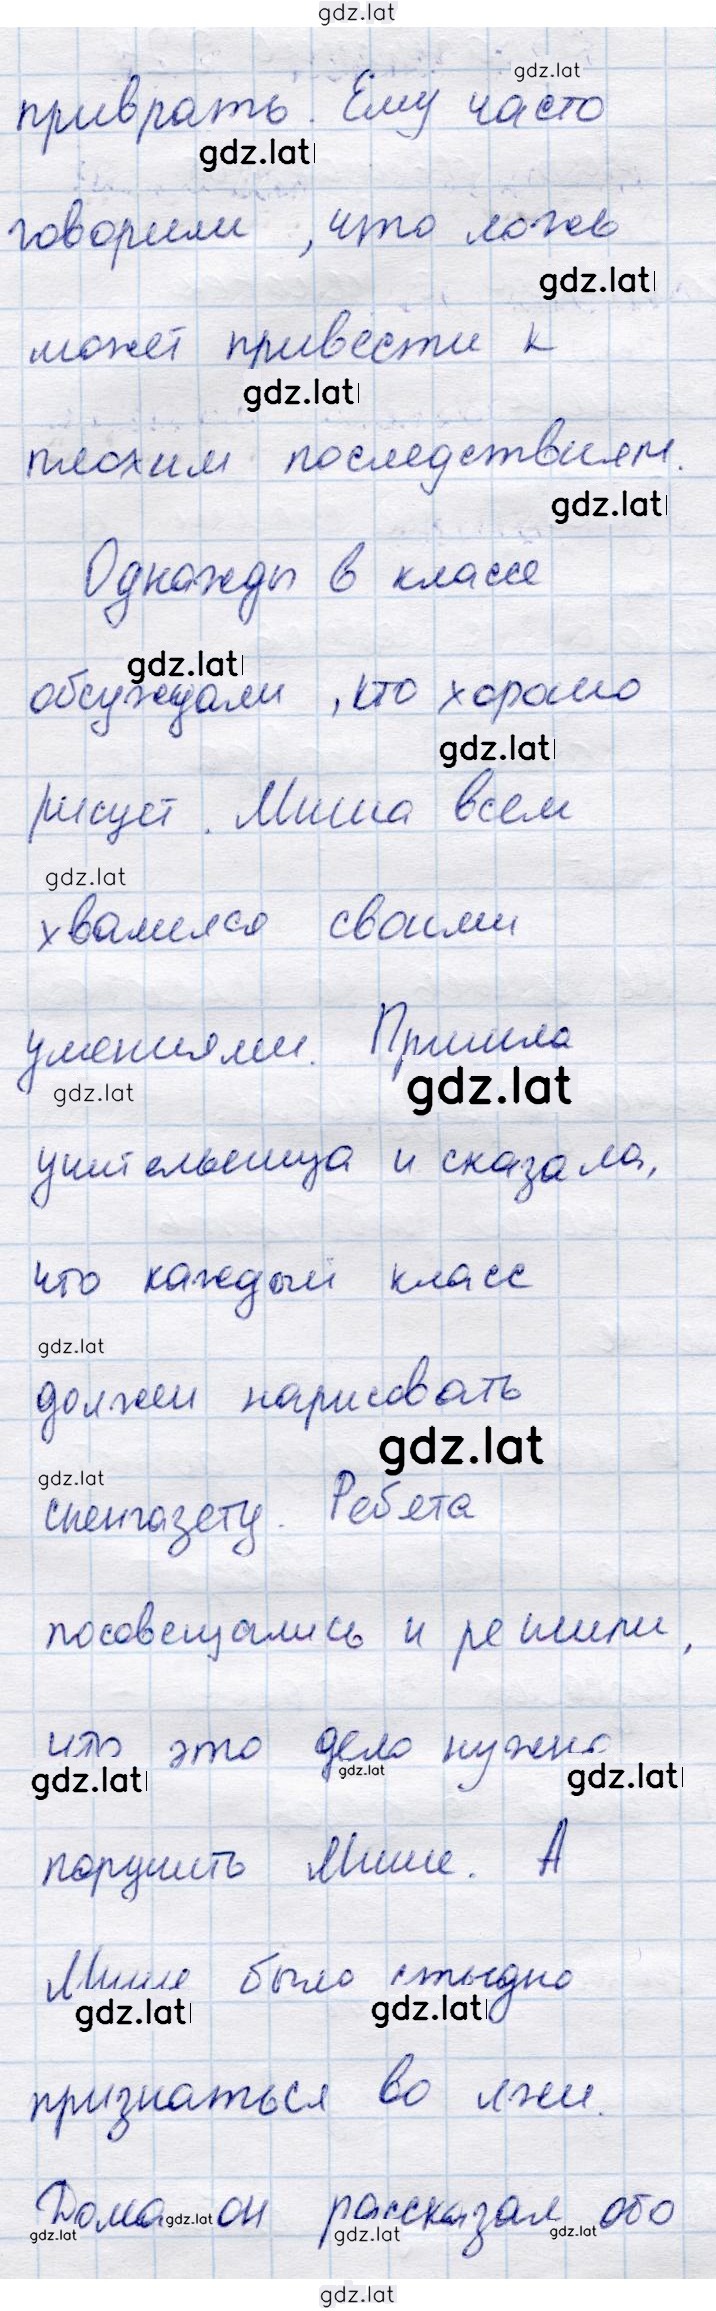 gdz.lat
gdz.lat
приврать. Ему часто
gdz.lat
говорили, что ложь
gdz.lat
может привести к
gdz.lat
плохим последствиям.
gdz.lat
Однажды в классе
gdz.lat
обсуждали, кто хорошо
gdz.lat
рисует. Миша всем
gdz.lat
хвалился своими
умениями. Пришла
gdz.lat
gdz.lat
учительница и сказала,
что каждый класс
gdz.lat
должен нарисовать
gdz.lat
gdz.lat
стенгазету. Ребята
посовещались и решили,
что это дело нужно
gdz.lat gdz.lat gdz.lat
поручить Мише. А
Мише было стыдно
gdz.lat gdz.lat
признаться во лжи.
Дома он рассказал обо
gdz.lat gdz.lat gdz.lat gdz.lat
gdz.lat